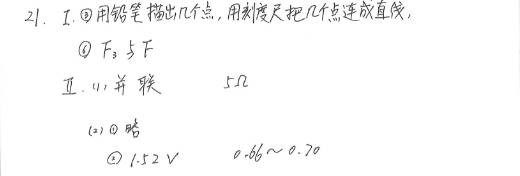 21. I. ③用铅笔描出几个点,用刻度尺把几个点连成直线,
⑥ F₃与F
II. (1) 并联 5Ω
(2) ① 略
② 1.52V 0.66~0.70